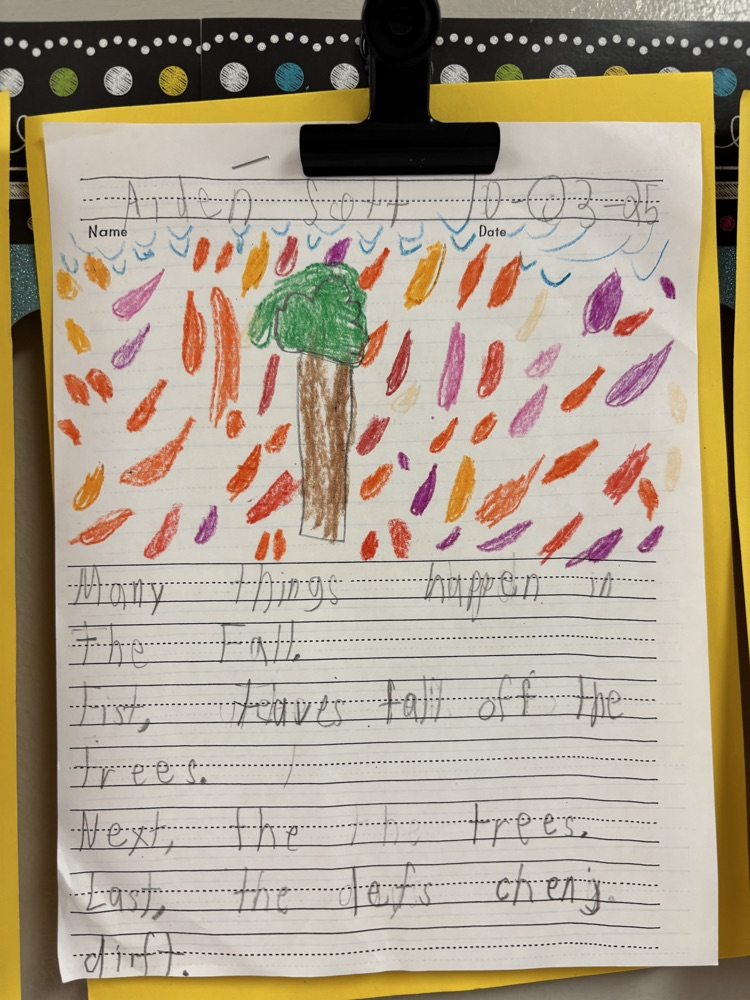 Aiden Scott 10-03-25
Name Date
Many things happen in
the Fall.
Fist, leaves fall off the
trees.
Next, the the trees.
Last, the dafs cheng.
dirft.